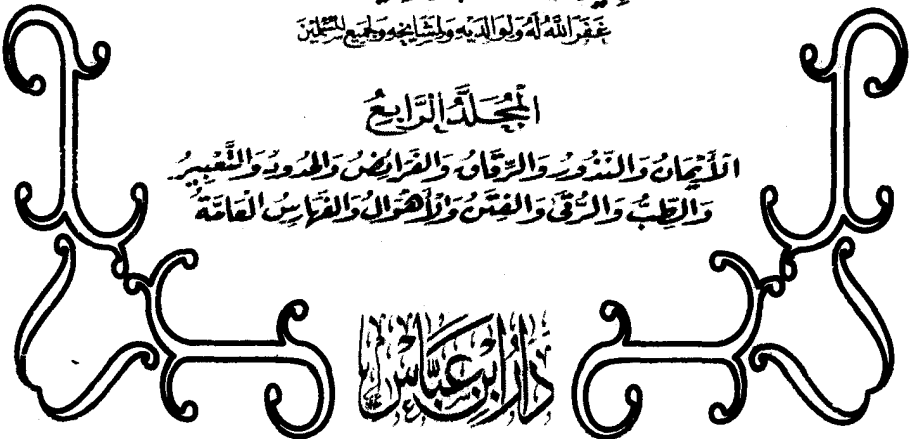 غَفَرَ اللَّهُ لَهُ وَلِوَالِدَيْهِ وَلِمَشَايِخِهِ وَلِجَمِيعِ المُسْلِمِينَ
المُجَلَّدُ الرَّابِعُ
الأَيْمَانُ وَالنُّذُورُ وَالرِّقَاقُ وَالفَرَائِضُ وَالحُدُودُ وَالتَّعْبِيرُ
وَالطِّبُّ وَالرُّقَى وَالفِتَنُ وَالأَهْوَالُ وَالفَهَارِسُ العَامَّةُ
دَارُ ابْنِ عَبَّاسٍ